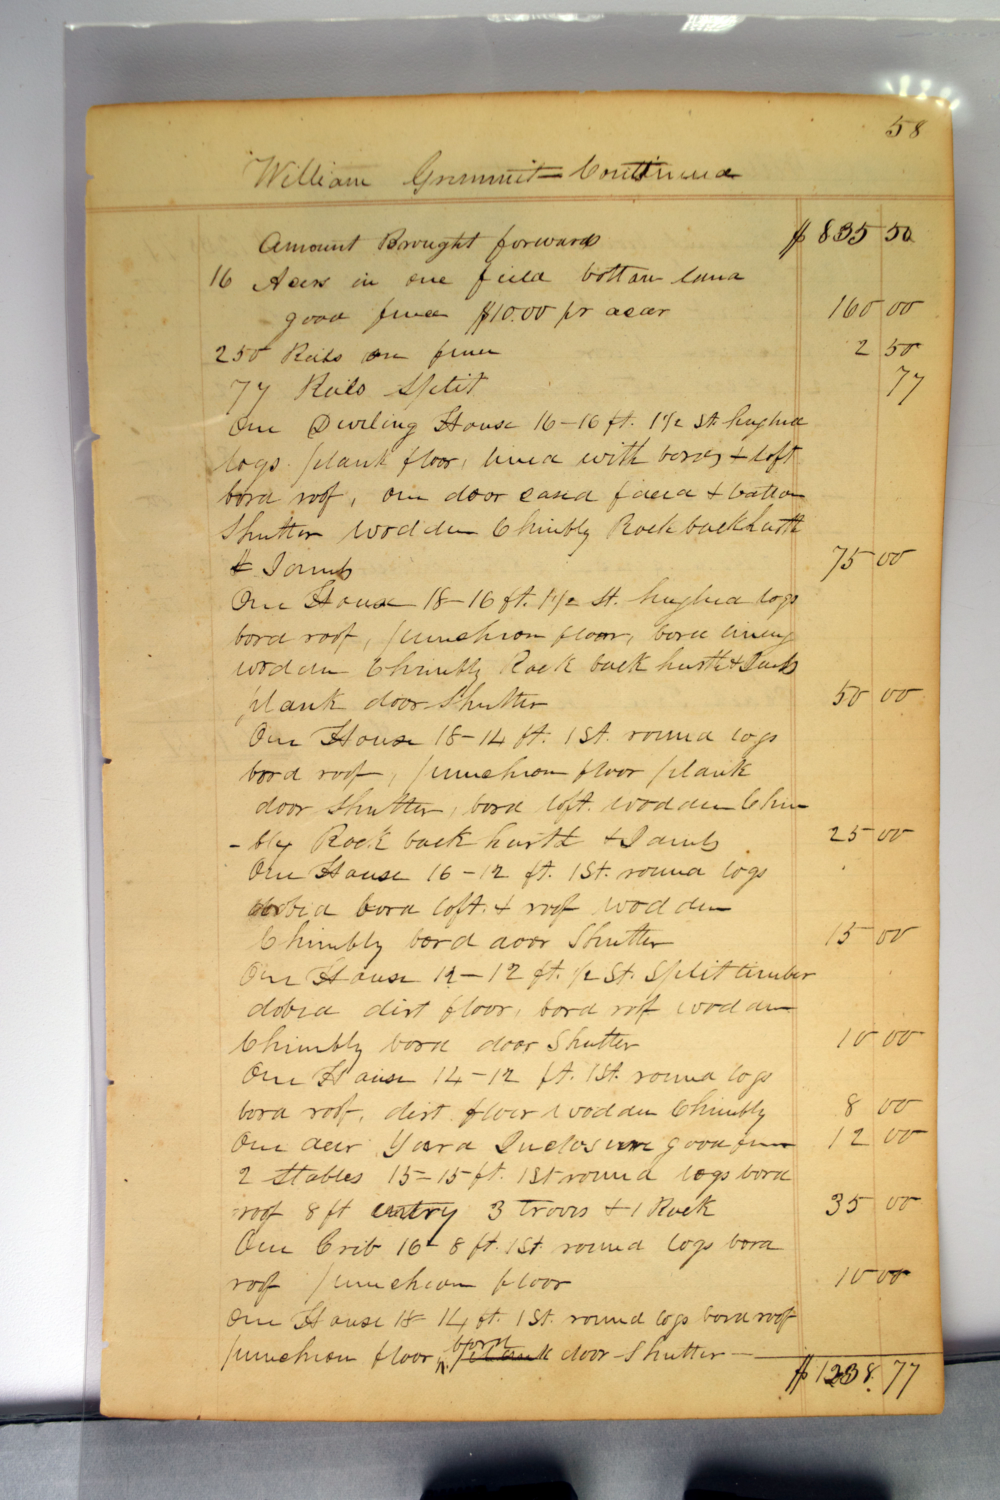 58
William Grimmit Continued
Amount Brought forward $835 50
16 Acers in one field bottom land
good fence $10.00 pr acar 160 00
250 Rails on fence 2 50
77 Rails Split 77
One Dwelling House 16-16 ft. 1 1/2 St. hughed
logs. plank floor, lined with bords & loft
bord roof, one door cased faced & batton
Shutter wodden Chimbly Rock back harth
& Jambs 75 00
One House 18-16 ft. 1 1/2 St. hughed logs
bord roof, puncheon floor, bord lineing
wodden Chimbly Rock back harth & Jambs
plank door Shutter 50 00
One House 18-14 ft. 1 St. round logs
bord roof, puncheon floor plank
door Shutter, bord loft. wodden Chim
-bly Rock back harth & Jambs 25 00
One House 16-12 ft. 1 St. round logs
dobed bord loft. & roof wodden
Chimbly bord door Shutter 15 00
One House 12-12 ft. 1/2 St. Split timber
dobed dirt floor, bord rof wodden
Chimbly bord door Shutter 10 00
One House 14-12 ft. 1 St. round logs
bord roof, dirt floor wodden Chimbly 8 00
One deer Yard Inclosure good fence 12 00
2 Stables 15-15 ft. 1 St round logs bord
roof 8 ft entry 3 trovs & 1 Rack 35 00
One Crib 16-8 ft. 1 St. round logs bord
roof puncheon floor 10 00
One House 18 14 ft. 1 St. round logs bord roof
bord
puncheon floor, plank door Shutter
$1238.77